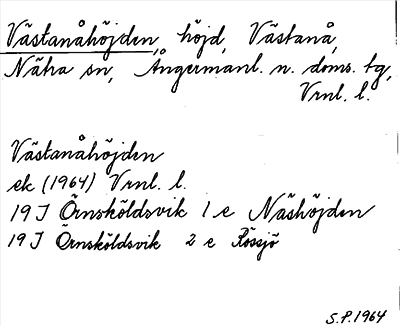 Västanåhöjden, höjd, Västanå,
Näha sn, Ångermanl. n. doms. tg,
Vrnl. l.
Västanåhöjden
ek (1964) Vrnl. l.
19 J Örnsköldsvik 1 e Näshöjden
19 J Örnsköldsvik 2 e Rössjö
S.P. 1964